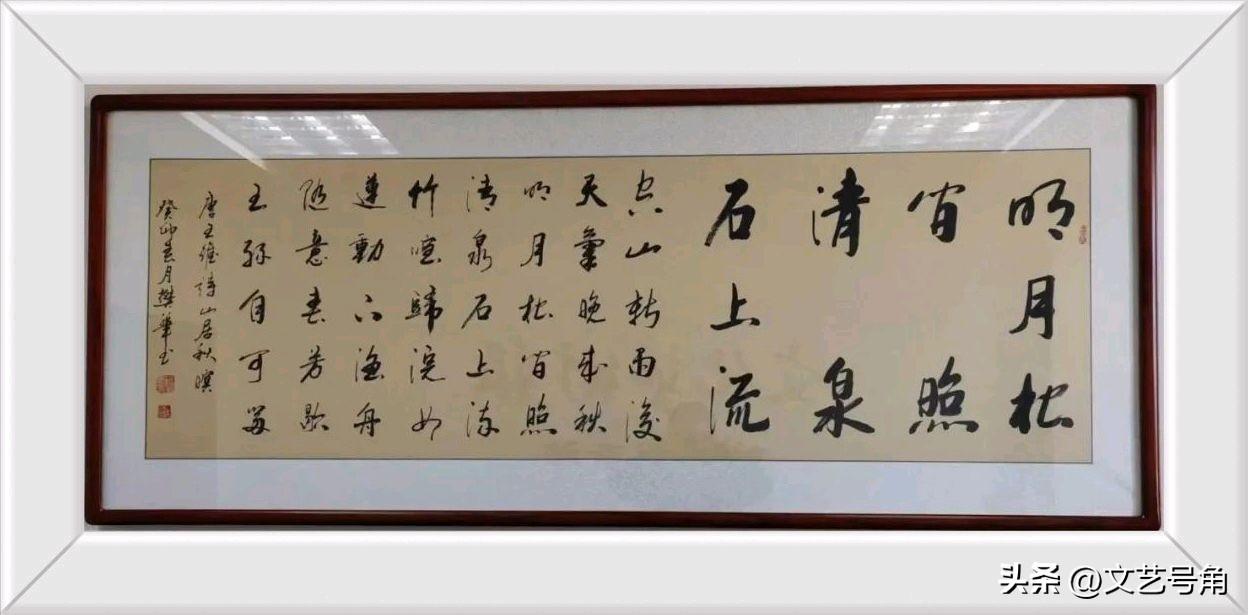 明月松
间照
清泉
石上流
空山新雨後
天氣晚来秋
明月松间照
清泉石上流
竹喧歸浣女
蓮動下漁舟
随意春芳歇
王孫自可留
唐王維詩山居秋暝
癸卯春月樊華书
头条 @文艺号角